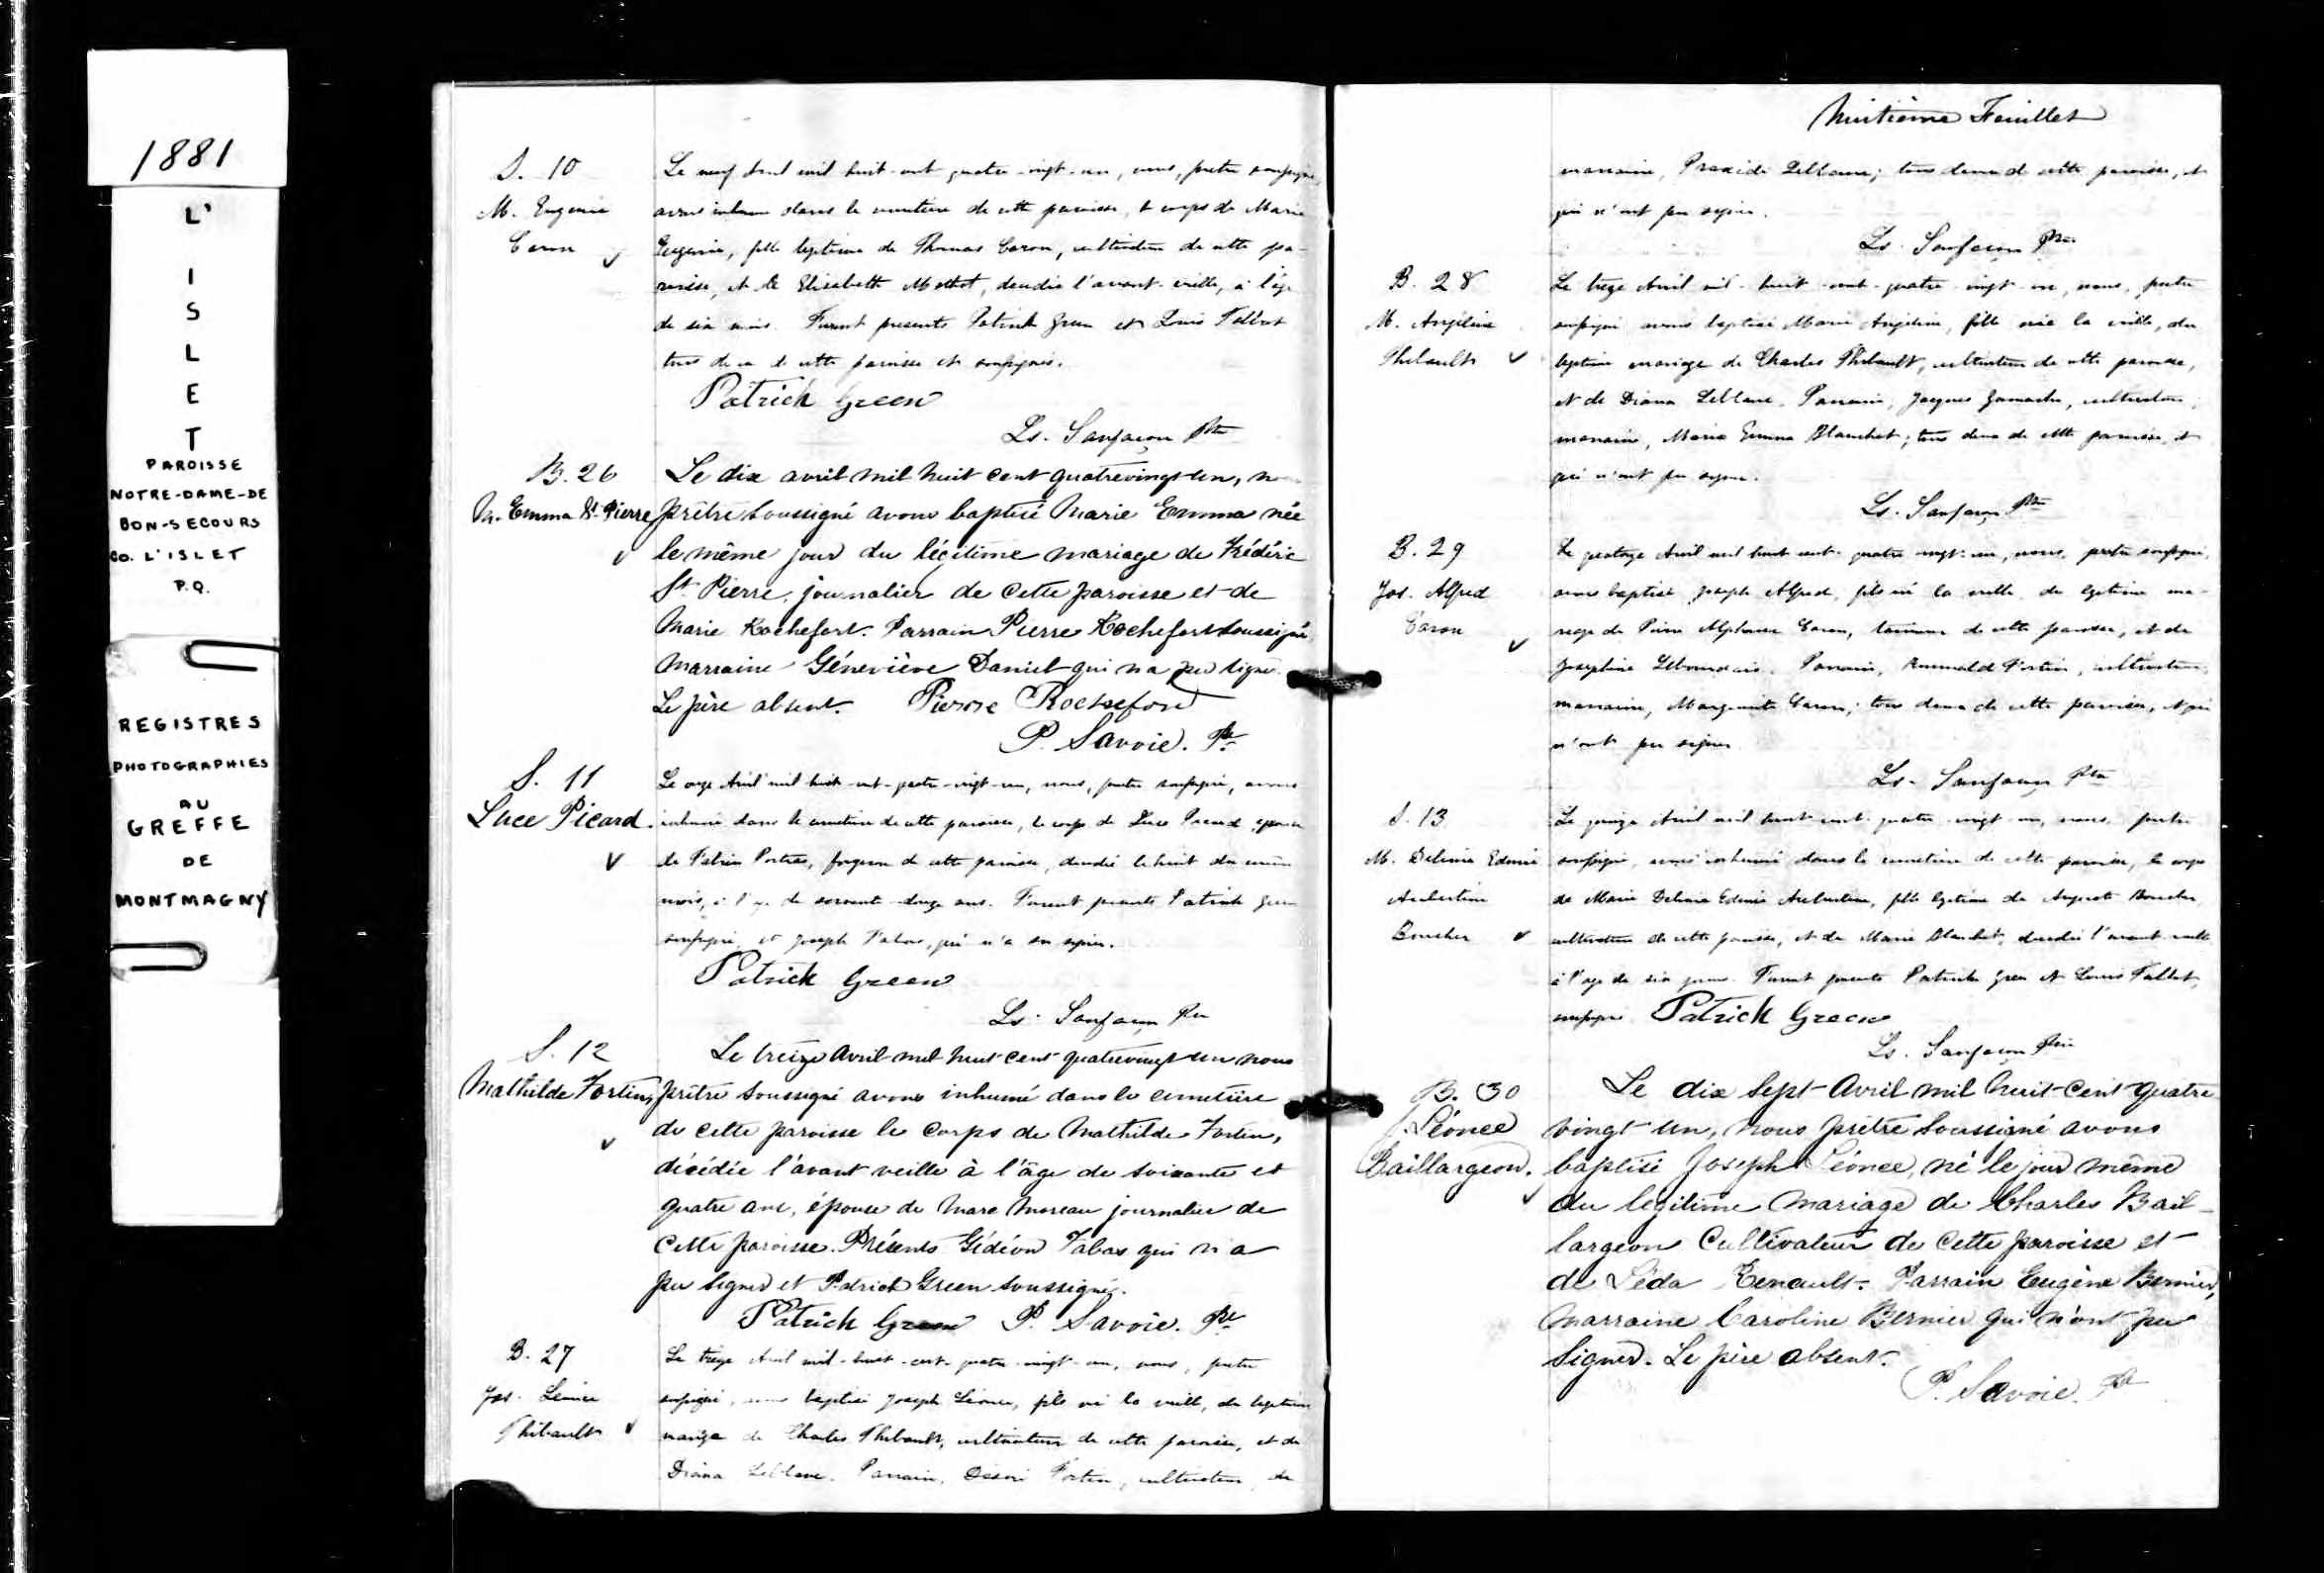 1881
L'
I
S
L
E
T
PAROISSE
NOTRE-DAME-DE
BON-SECOURS
CO. L'ISLET
P.Q.
REGISTRES
PHOTOGRAPHIES
AU
GREFFE
DE
MONTMAGNY
S. 10
M. Eugenie
Caron
Le neuf Avril mil huit-cent quatre-vingt-un, nous, prêtre soussigné,
avons inhumé dans le cimetière de cette paroisse, le corps de Marie
Eugenie, fille legitime de Thomas Caron, cultivateur de cette pa-
roisse, et de Elisabeth Mothot, decedée l'avant-veille, à l'age
de six mois. Furent presents Patrick Green et Louis Talbot
tous deux de cette paroisse et soussignés.
Patrick Green
Ls. Sanfaçon Ptre
B. 26
M. Emma St. Pierre
Le dix avril mil huit cent quatrevingt-un,
prêtre soussigné avons baptisé Marie Emma née
le même jour du légitime mariage de Frédéric
St. Pierre, journalier de cette paroisse et de
Marie Rochefort. Parrain Pierre Rochefort soussigné
Marraine Géneviève Daniel qui n'a pu signer.
Le père absent. Pierre Rochefort
P. Savoie. Ptr
S. 11
Luce Picard.
Le onze Avril mil huit-cent-quatre-vingt-un, nous, prêtre soussigné, avons
inhumé dans le cimetière de cette paroisse, le corps de Luce Picard, épouse
de Fabien Portras, forgeron de cette paroisse, decedée le huit du même
mois, à l'age de soixante-douze ans. Furent presents Patrick Green
soussigné, et Joseph qui n'a su signer.
Patrick Green
Ls. Sanfaçon Ptre
S. 12
Mathilde Fortin,
Le treize Avril mil huit cent quatrevingt un nous
prêtre soussigné avons inhumé dans le cimetière
de cette paroisse le corps de Mathilde Fortin,
décédée l'avant veille à l'âge de soixante et
quatre ans, épouse de Marc Moreau journalier de
cette paroisse. Présents Gédéon Tabas qui n'a
pu signer et Patrick Green soussigné.
Patrick Green P. Savoie. Ptr
B. 27
Jos. Léonce
Thibault
Le treize Avril mil-huit-cent-quatre-vingt-un, nous, prêtre
soussigné, avons baptisé Joseph Léonce, fils né la veille, du legitime
mariage de Charles Thibault, cultivateur de cette paroisse, et de
Diana Leblanc. Parrain, Fortin, cultivateur, de
Huitième Feuillet
marraine, Praxède Leblanc; tous deux de cette paroisse, et
qui n'ont pu signer.
Ls. Sanfaçon Ptre
B. 28
M. Angéline
Thibault
Le treize Avril mil-huit-cent-quatre-vingt-un, nous, prêtre
soussigné avons baptisé Marie Angéline, fille née la veille, du
legitime mariage de Charles Thibault, cultivateur de cette paroisse,
et de Diana Leblanc. Parrain, Jacques Gamache, cultivateur;
marraine, Marie Emma Blanchet; tous deux de cette paroisse, et
qui n'ont pu signer.
Ls. Sanfaçon Ptre
B. 29
Jos. Alfred
Caron
Le quatorze Avril mil huit cent-quatre-vingt-un, nous, prêtre soussigné,
avons baptisé Joseph Alfred, fils né la veille, du legitime ma-
riage de Pierre Alphonse Caron, tanneur de cette paroisse, et de
Josephine Lebourdais. Parrain, Romuald Fortin, cultivateur;
marraine, Marguerite Caron; tous deux de cette paroisse, et qui
n'ont pu signer
Ls. Sanfaçon Ptre
S. 13
M. Delima Edmie
Aubertine
Boucher
Le quinze Avril mil huit-cent-quatre-vingt-un, nous, prêtre
soussigné, avons inhumé dans le cimetière de cette paroisse, le corps
de Marie Delima Edmie Aubertine, fille legitime de Auguste Boucher,
cultivateur de cette paroisse, et de Marie Blanchet, decedée l'avant-veille
à l'age de six jours. Furent presents Patrick Green et Louis Talbot,
soussignés. Patrick Green
Ls. Sanfaçon Ptre
B. 30
J. Léonce
Baillargeon.
Le dix sept Avril mil huit-cent-quatre
vingt un, nous prêtre soussigné avons
baptisé Joseph Léonce, né le jour même
du legitime mariage de Charles Bail-
largeon Cultivateur de cette paroisse et
de Léda Renault. Parrain Eugène Bernier,
marraine Caroline Bernier qui n'ont pu
signer. Le père absent.
P. Savoie. Ptr